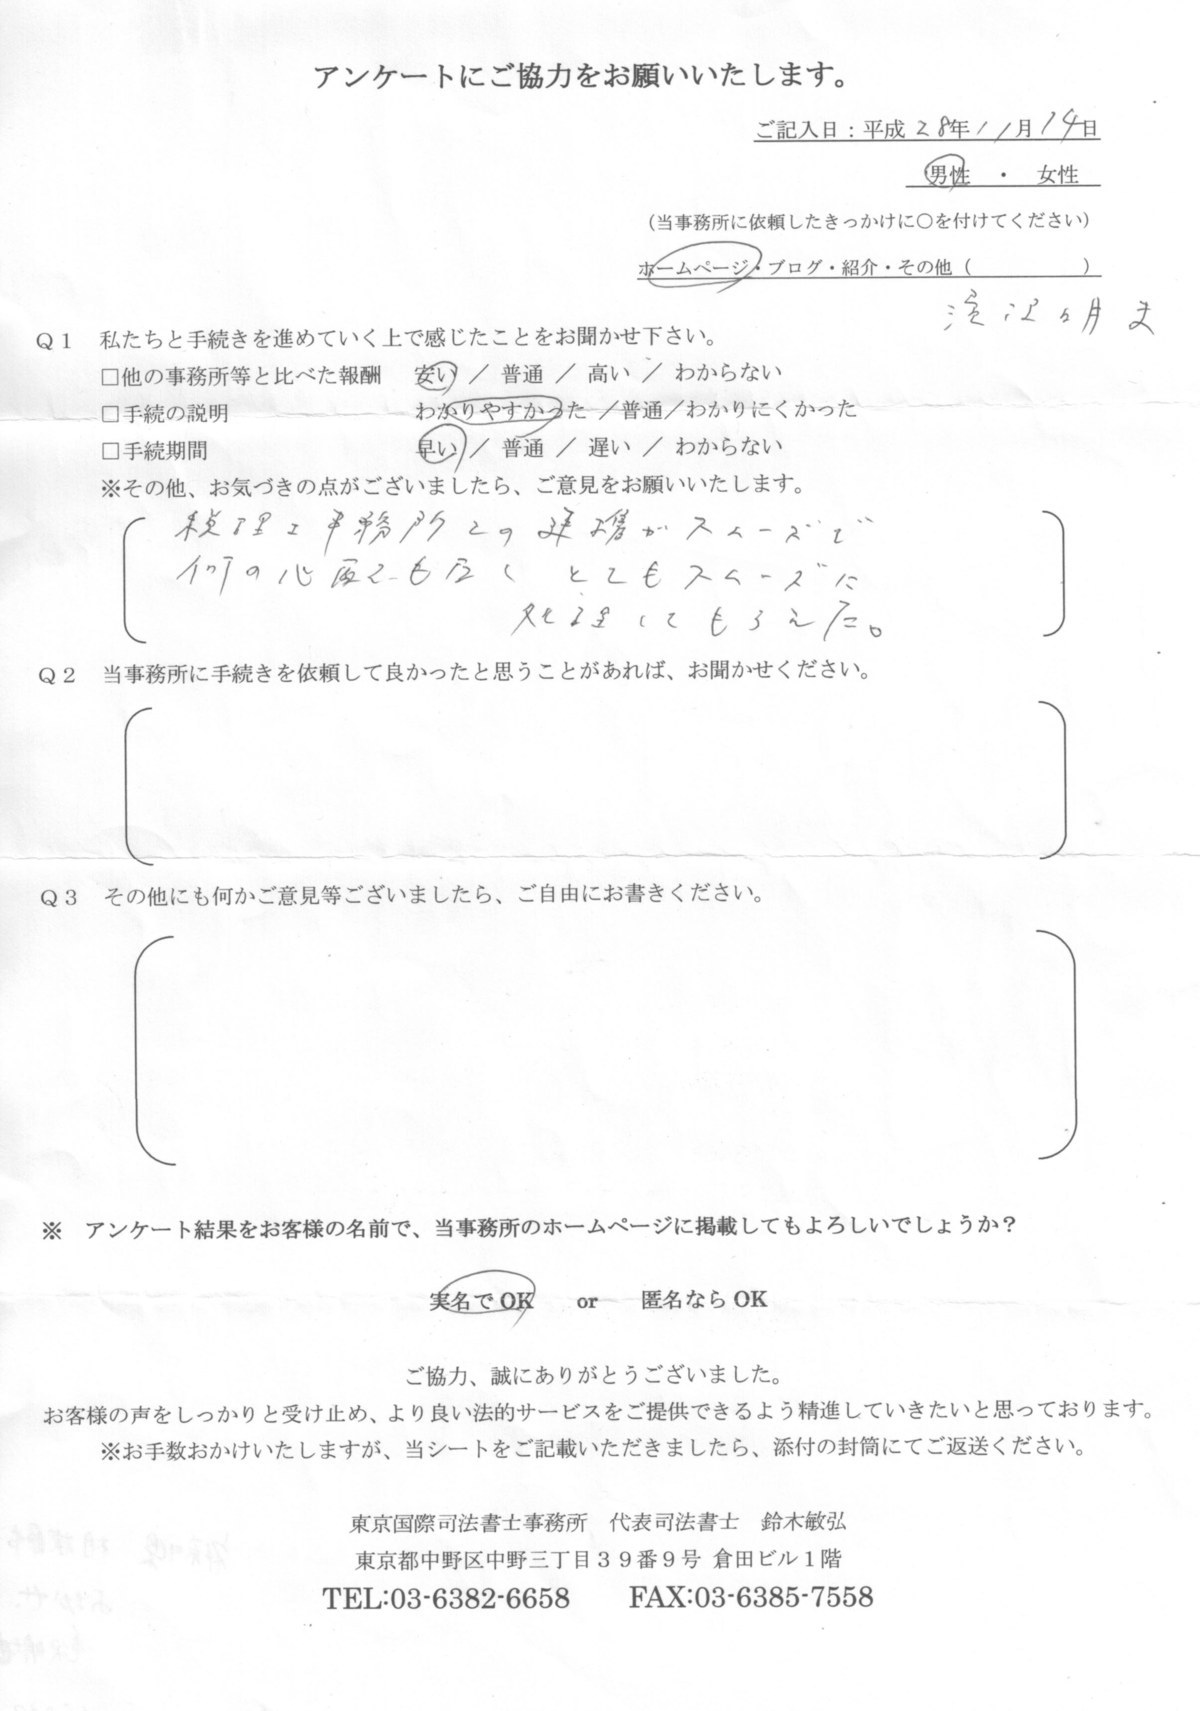 アンケートにご協力をお願いいたします。
ご記入日：平成 28年 11月 14日
男性 ・ 女性
（当事務所に依頼したきっかけに〇を付けてください）
ホームページ・ブログ・紹介・その他（　　　　　）
Ｑ１　私たちと手続きを進めていく上で感じたことをお聞かせ下さい。
□他の事務所等と比べた報酬　安い ／ 普通 ／ 高い ／ わからない
□手続の説明　わかりやすかった ／普通／わかりにくかった
□手続期間　早い ／ 普通 ／ 遅い ／ わからない
※その他、お気づきの点がございましたら、ご意見をお願いいたします。
税理士事務所との連携がスムーズで
何の心配も無く とてもスムーズに
処理してもらえた。
Ｑ２　当事務所に手続きを依頼して良かったと思うことがあれば、お聞かせください。
Ｑ３　その他にも何かご意見等ございましたら、ご自由にお書きください。
※　アンケート結果をお客様の名前で、当事務所のホームページに掲載してもよろしいでしょうか？
実名でOK　or　匿名ならOK
ご協力、誠にありがとうございました。
お客様の声をしっかりと受け止め、より良い法的サービスをご提供できるよう精進していきたいと思っております。
※お手数おかけいたしますが、当シートをご記載いただきましたら、添付の封筒にてご返送ください。
東京国際司法書士事務所　代表司法書士　鈴木敏弘
東京都中野区中野三丁目３９番９号 倉田ビル１階
TEL:03-6382-6658　FAX:03-6385-7558